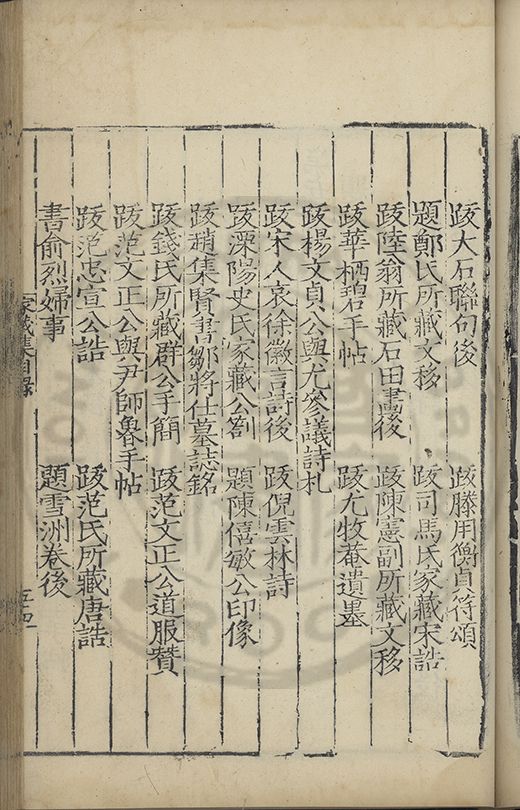 跋大石聯句後　跋滕用衡貞符頌
題鄭氏所藏文移　跋司馬氏家藏宋誥
跋陸翁所藏石田畫後　跋陳憲副所藏文移
跋華栖碧手帖　跋尤牧菴遺墨
跋楊文貞公與尤參議詩札
跋宋人哀徐徽言詩後　跋倪雲林詩
跋溧陽史氏家藏公劄　題陳僖敏公印像
跋趙集賢書鄒將仕墓誌銘
跋錢氏所藏群公手簡　跋范文正公道服贊
跋范文正公與尹師魯手帖
跋范忠宣公誥　跋范氏所藏唐誥
書俞烈婦事　題雪洲卷後
家藏集目錄　五十四